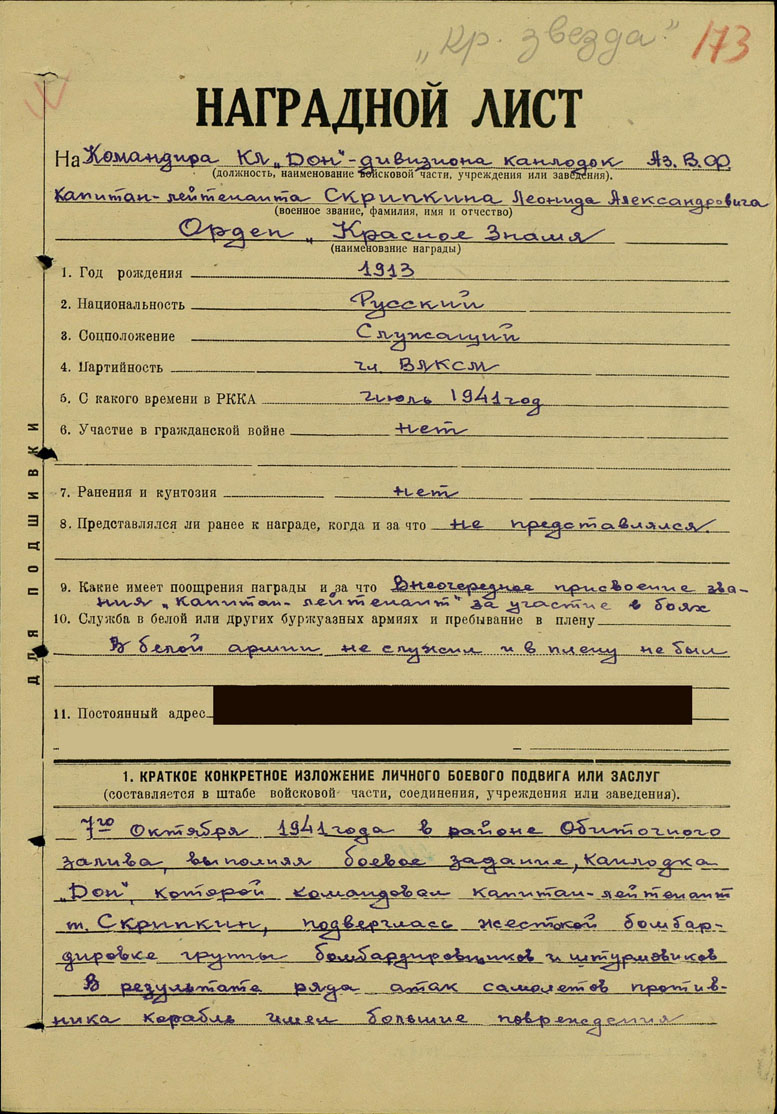 „Кр. звезда" 173
НАГРАДНОЙ ЛИСТ
На Командира КЛ „Дон"-дивизиона канлодок Аз.В.Ф.
(должность, наименование войсковой части, учреждения или заведения).
Капитан-лейтенанта СКРИПКИНА Леонида Александровича
(военное звание, фамилия, имя и отчество)
Орден „Красное Знамя
(наименование награды)
1. Год рождения 1913
2. Национальность Русский
3. Соцположение Служащий
4. Партийность чл. ВЛКСМ
5. С какого времени в РККА Июль 1941 год
6. Участие в гражданской войне нет
7. Ранения и кунтозия нет
8. Представлялся ли ранее к награде, когда и за что не представлялся.
9. Какие имеет поощрения награды и за что Внеочередное присвоение зва-
ния „Капитан-лейтенант" за участие в боях
10. Служба в белой или других буржуазных армиях и пребывание в плену
В белой армии не служил и в плену не был
11. Постоянный адрес
1. КРАТКОЕ КОНКРЕТНОЕ ИЗЛОЖЕНИЕ ЛИЧНОГО БОЕВОГО ПОДВИГА ИЛИ ЗАСЛУГ
(составляется в штабе войсковой части, соединения, учреждения или заведения).
7го Октября 1941 года в районе Обиточного
залива, выполняя боевое задание, Канлодка
„Дон", которой командовал капитан-лейтенант
т. СКРИПКИН, подверглась жесткой бомбар-
дировке группы бомбардировщиков и штурмовиков
В результате ряда атак самолетов против-
ника корабль имел большие повреждения
ДЛЯ ПОДШИВКИ